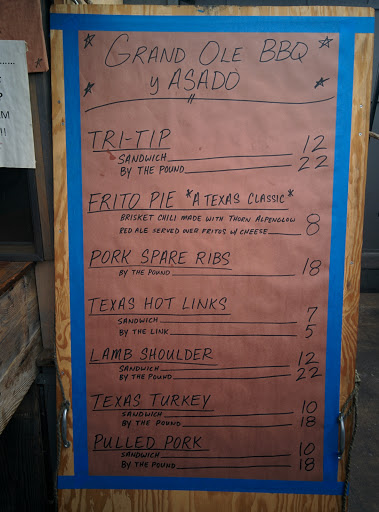 GRAND OLE BBQ
y ASADO
TRI-TIP
SANDWICH 12
BY THE POUND 22
FRITO PIE *A TEXAS CLASSIC*
BRISKET CHILI MADE WITH THORN ALPENGLOW
RED ALE SERVED OVER FRITOS W/ CHEESE 8
PORK SPARE RIBS
BY THE POUND 18
TEXAS HOT LINKS
SANDWICH 7
BY THE LINK 5
LAMB SHOULDER
SANDWICH 12
BY THE POUND 22
TEXAS TURKEY
SANDWICH 10
BY THE POUND 18
PULLED PORK
SANDWICH 10
BY THE POUND 18